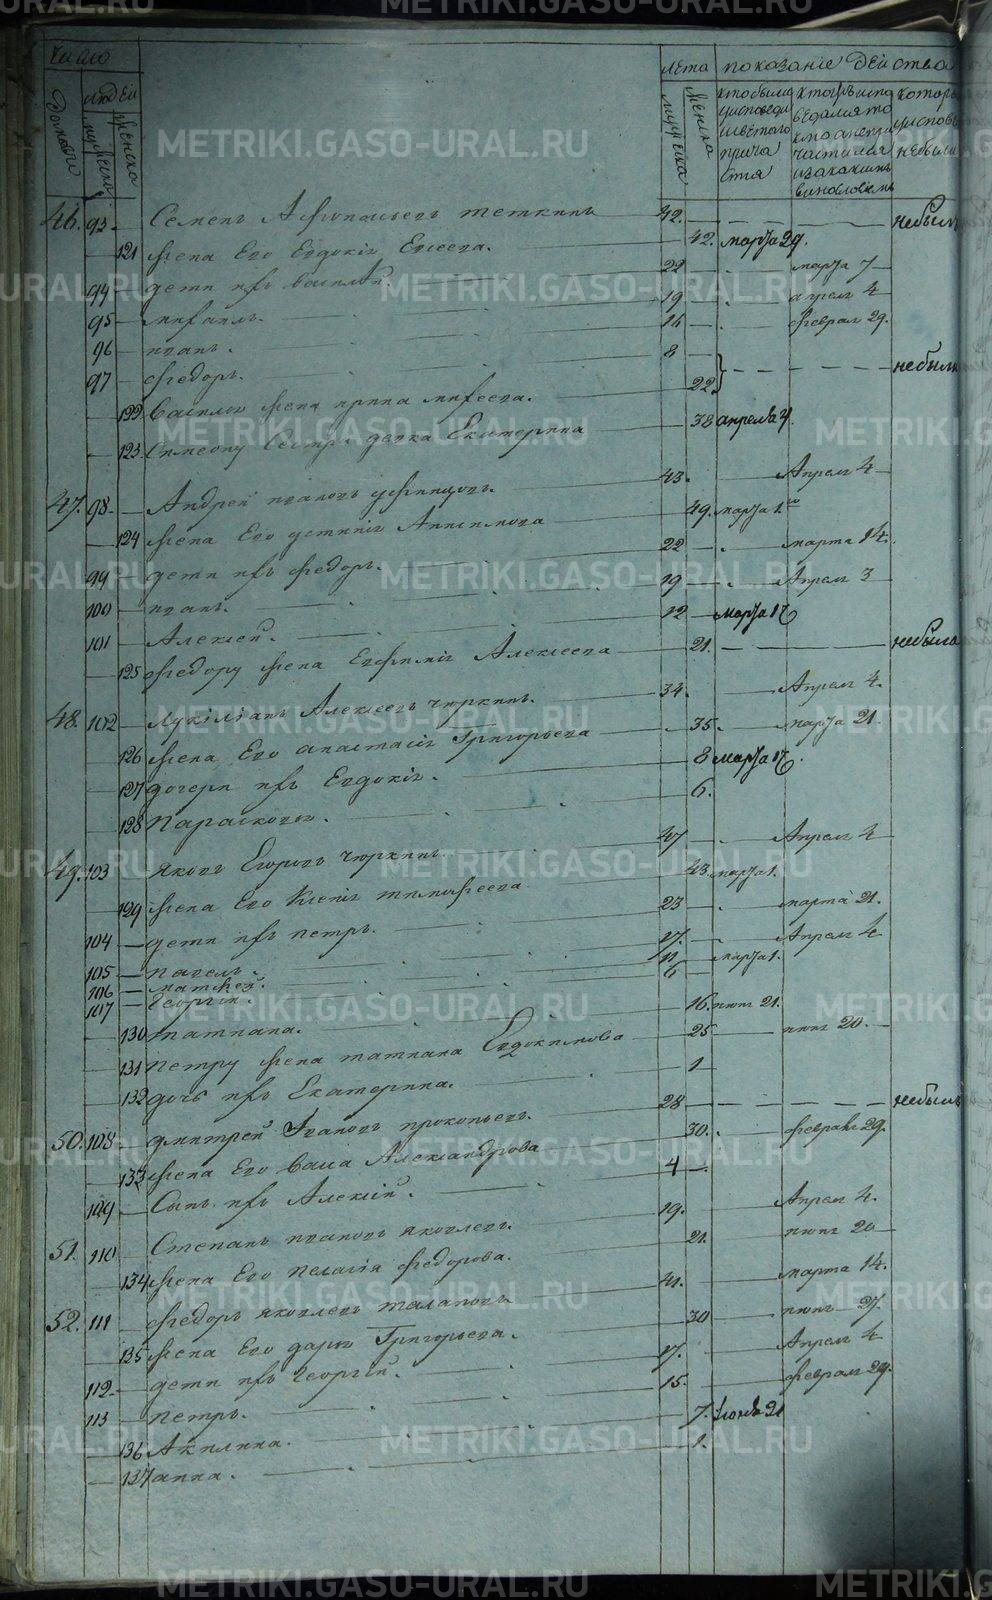 Число
Людей
лета
показаніе действа
домовъ
мужеска
женска
мужеска
женска
кто были у исповеди и святого прича стия
46. 93 Семенъ Афонасьевъ теткинъ 42. небылъ
121 жена Его Евдокія Евсеева. 42. марта 29.
94 дети ихъ василей 22 марта 7
95 михаилъ. 19 апреля 4
96 иванъ. 14 февраля 29.
97 федоръ. 8 небыли
122 василью жена ирина михеева. 22
123 Симеону Сестра девка Екатерина 38 апреля 4.
47. 98 Андрей ивановъ 43. Апреля 4
124 жена Его Анисимова 49. марта 1го
99 дети ихъ федоръ. 22 марта 14.
100 иванъ. 19 Апреля 3
101 Алексей. 12 марта 17
125 федору жена Евфимия Алексеева 21. небыла
48. 102 Алексеевъ чюркинъ. 34. Апреля 4.
126 жена Его анастасия Григорьева 35. марта 21
127 дочери ихъ Евдокия. 8 марта 17.
128 Парасковья. 6.
49. 103 яковъ Егоровъ чюркинъ 47 Апреля 4
129 жена Его Ксения тимофеева 43. марта 1.
104 дети ихъ петръ. 23 марта 21.
105 павелъ. 17. Апреля 4
106 матвей. 11 марта 1.
107 Георгий. 6
130 татиана. 16. июня 21.
131 петру жена татиана Евдокимова 25 июня 20.
132 дочь ихъ Екатерина. 1
50. 108 дмитрей Ивановъ прокопьевъ. 28 небылъ
133 жена Его Васса Александрова 30. февраля 29.
109 Сынъ ихъ Алексий. 4
51. 110 Степанъ ивановъ яковлевъ. 19. Апреля 4.
134 жена Его пелагия федорова. 21. июня 20
52. 111 федоръ яковлевъ 41. марта 14.
135 жена Его дарья Григорьева. 30 июня 27.
112 дети ихъ Георгий. 17. Апреля 4
113 Петръ. 15. февраля 29.
136 Акилина. 7. Июня 21
137 анна. 1.
METRIKI.GASO-URAL.RU